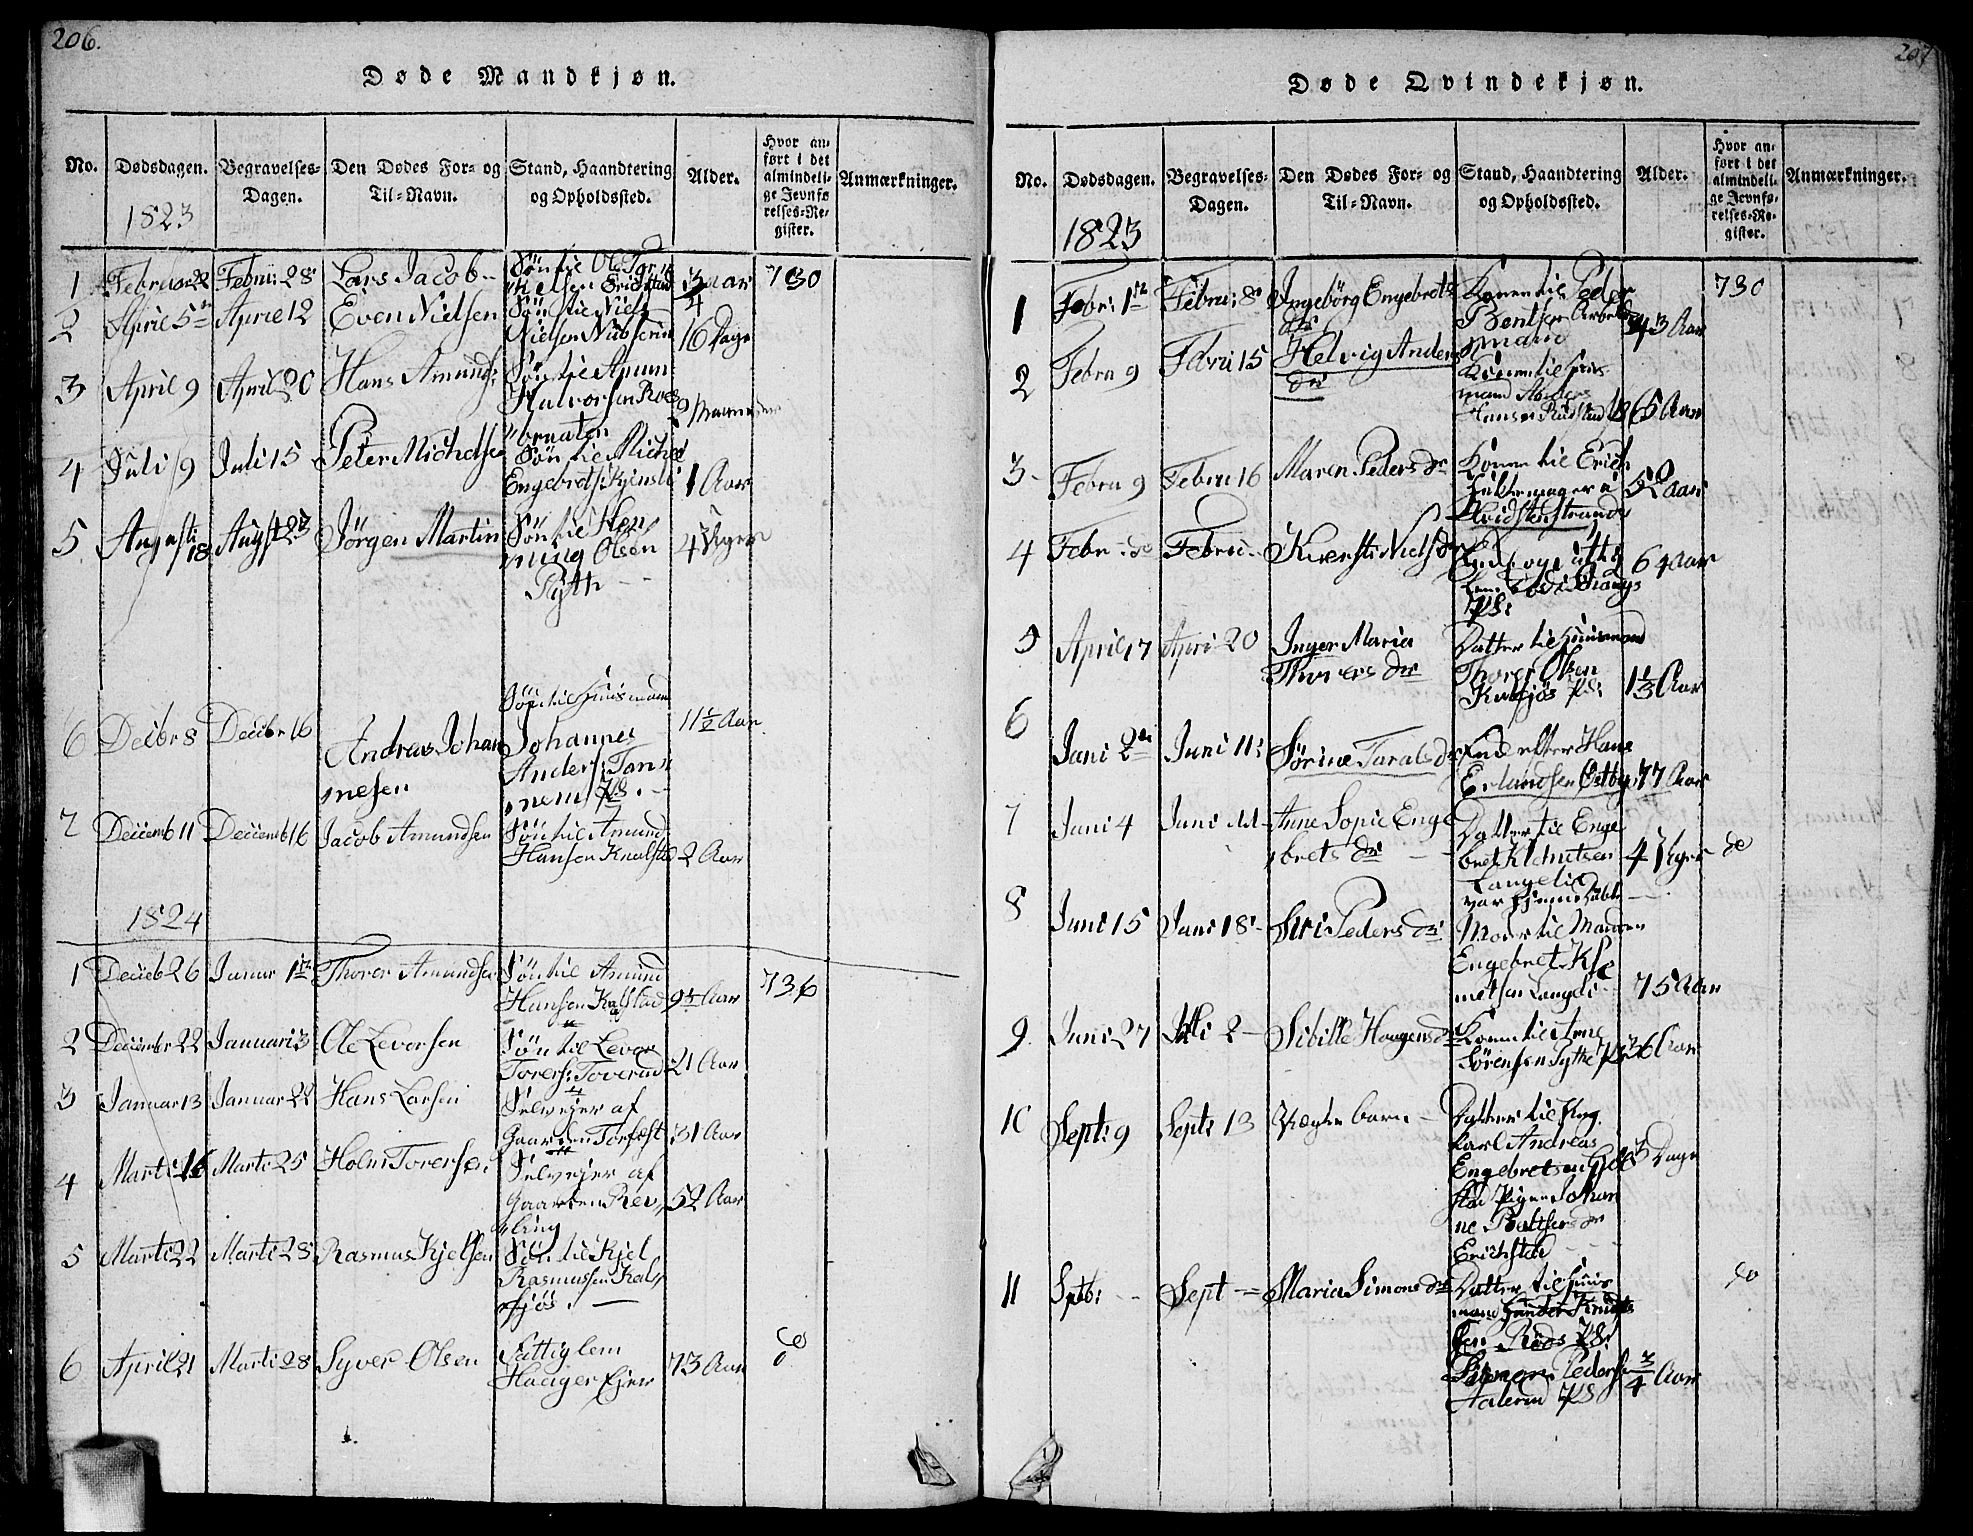 206.
Døde Mandkjøn.
No. Dødsdagen. Begravelses-Dagen. Den Dødes For- og Til-Navn. Stand, Haandtering og Opholdssted. Alder. Hvor anført i det almindelige Jevnførelses-Register. Anmærkninger.
1823
1 Februar 22 Febru: 28 Lars Jacob Søn til Ole 3/4 Aar 730
2 April 5 April 12 Even Nielsen Søn til Niels
Nielsen 16 Dage
3 April 9 April 20 Hans Amunds: Søn til Amun
Halvorsen 9 Maaneder
4 Juli 9 Juli 15 Peter Michelsen Søn til Michel
Engebrets: 1 Aar
5 Augusti 18 Augst 23 Jörgen Martin Søn til Hen
ning Olsen 4 Uger
Rytte
6 Decbr 8 Decbr 16 Andreas Johan
nesen Søn til Huusmand 11 1/2 Aar
Johannes
Anders: Tom
nem Ps.
7 Decemb 11 Decemb 16 Jacob Amundsen Søn til Amund
Hansen Kalstad 2 Aar
1824
1 Deceb 26 Januar 1 Thorer Amundsen Søn til Amund
Hansen Kalstad 9 1/2 Aar 736
2 Decembr 22 Januari 3 Ole Leversen Søn til Lever
Torers: Toverud 21 Aar
3 Januar 13 Januar 22 Hans Larsen Selvejer af
Gaarden Torfest 31 Aar
4 Marti 16 Marti 25 Holm Toversen Selvejer af
Gaarden Rev
ling 52 Aar
5 Marti 22 Marti 28 Rasmus Kjelsen Søn til Kjel
Rasmussen Kal
sjös
6 April 21 Marti 28 Syver Olsen Fattiglem
Haager Ejer 73 Aar do
207
Døde Qvindekjøn.
No. Dødsdagen. Begravelses-Dagen. Den Dødes For- og Til-Navn. Stand, Haandtering og Opholdssted. Alder. Hvor anført i det almindelige Jevnførelses-Register. Anmærkninger.
1823
1 Febr: 1 Febru: 8 Ingebörg Engebrets
dr Konen til Peder
Bentsen Arbeids
mand 43 Aar 730
2 Febru 9 Febru 15 Helvig Anders
dr Konen til Huus
mand Anders
Hansen Rudstad 65 Aar
3 Febru 9 Febru 16 Maren Peders dr Konen til Erich
Hvidstenstranden 52 Aar
4 Febr do Febru Kiersti Niels dr 64 Aar
Ps:
5 April 17 April 20 Inger Maria
Thorers dr Datter til Huusmand
Thorer Olsen
Kalsjös Ps: 1 1/3 Aar
6 Juni 2 Juni 11: Sörine Tarals dr Enke efter Hans
Erlandsen Østby 77 Aar
7 Juni 4 Juni 11 Anne Sopie Enge
brets dr Datter til Enge
bret Klemetsen
Langelie 4 Uger do
var hjemmedøbt
8 Juni 15 Juni 18 Siri Peders dr Moder til Manden
Engebret Kle
metsen Langeli 75 Aar
9 Juni 27 Juli 2 Sibille Haagens dr Konen til Arne
Sörensen Sytte Ps 36 Aar
10 Septr 9 Septr 13 Uægte barn Datter til Ung
karl Andreas
Engebretsen 3 Dage
Pigen Johan
ne Baltsers dr
Erichstad
11 Septb: Sept Maria Simons dr Datter til Huus
mand
Röds Ps: do
Simon Peders
Aalerud Ps 3/4 Aar